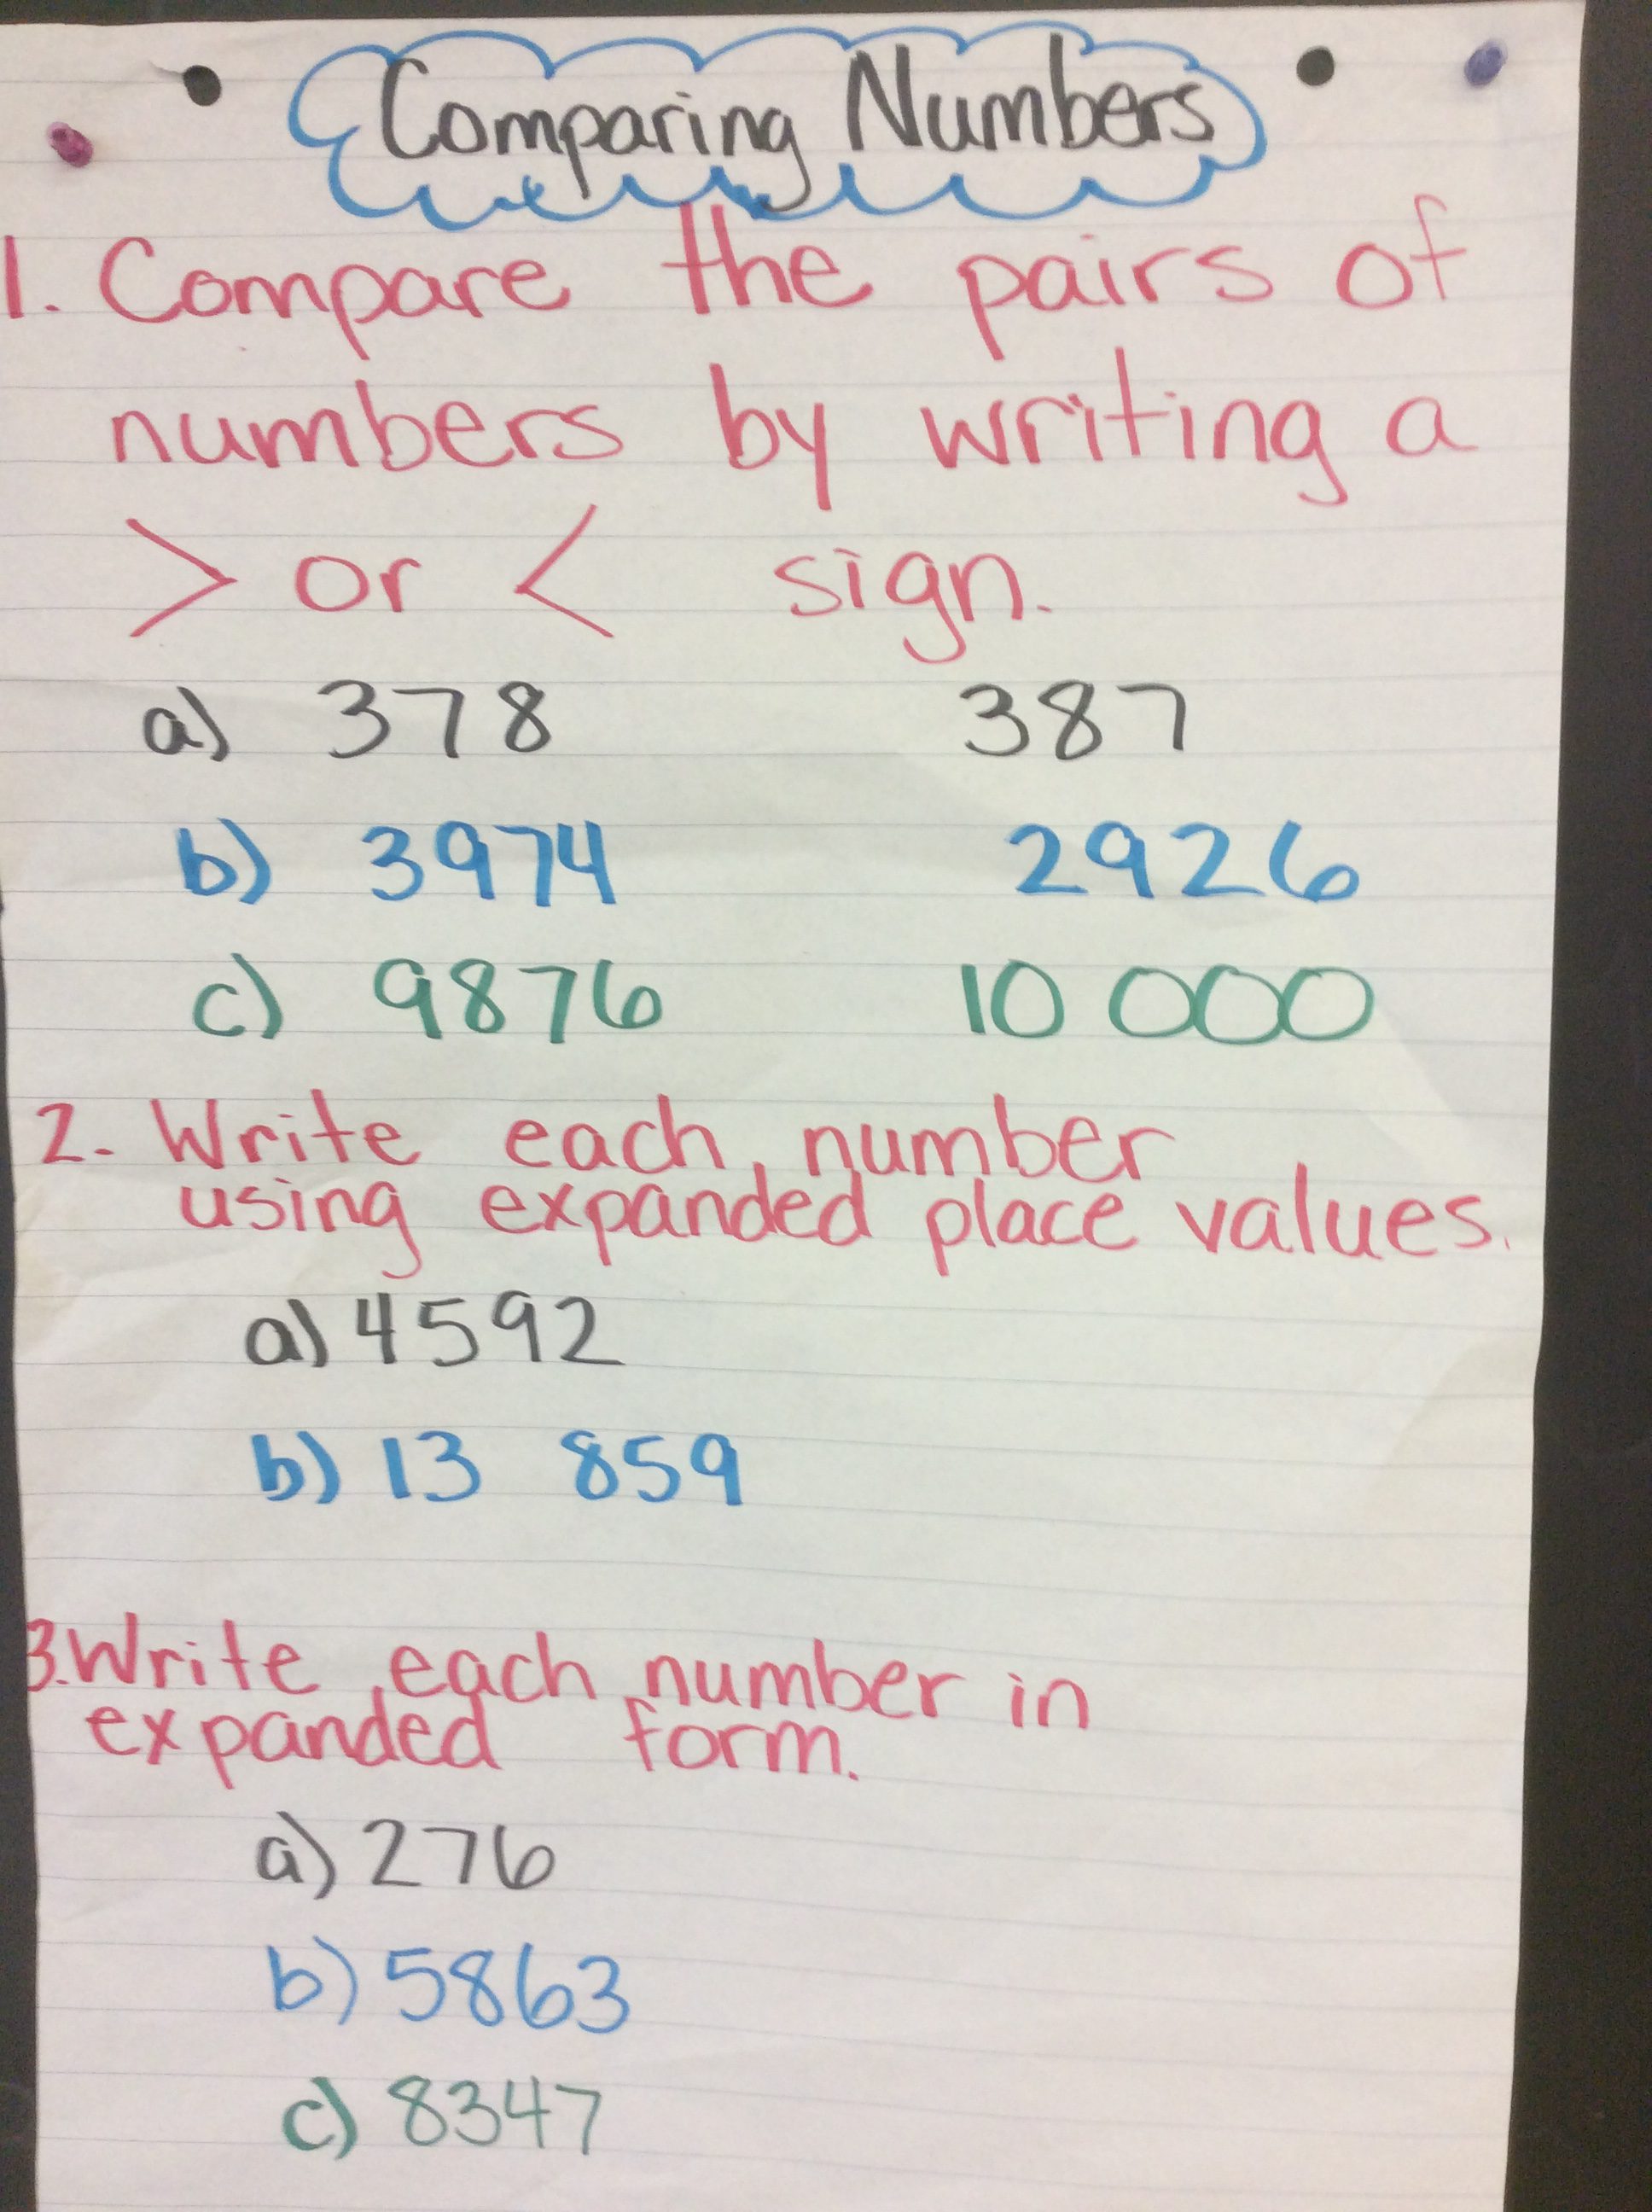 Comparing Numbers
1. Compare the pairs of
numbers by writing a
> or < sign.
a) 378 387
b) 3974 2926
c) 9876 10 000
2. Write each number
using expanded place values.
a) 4592
b) 13 859
3. Write each number in
expanded form.
a) 276
b) 5863
c) 8347